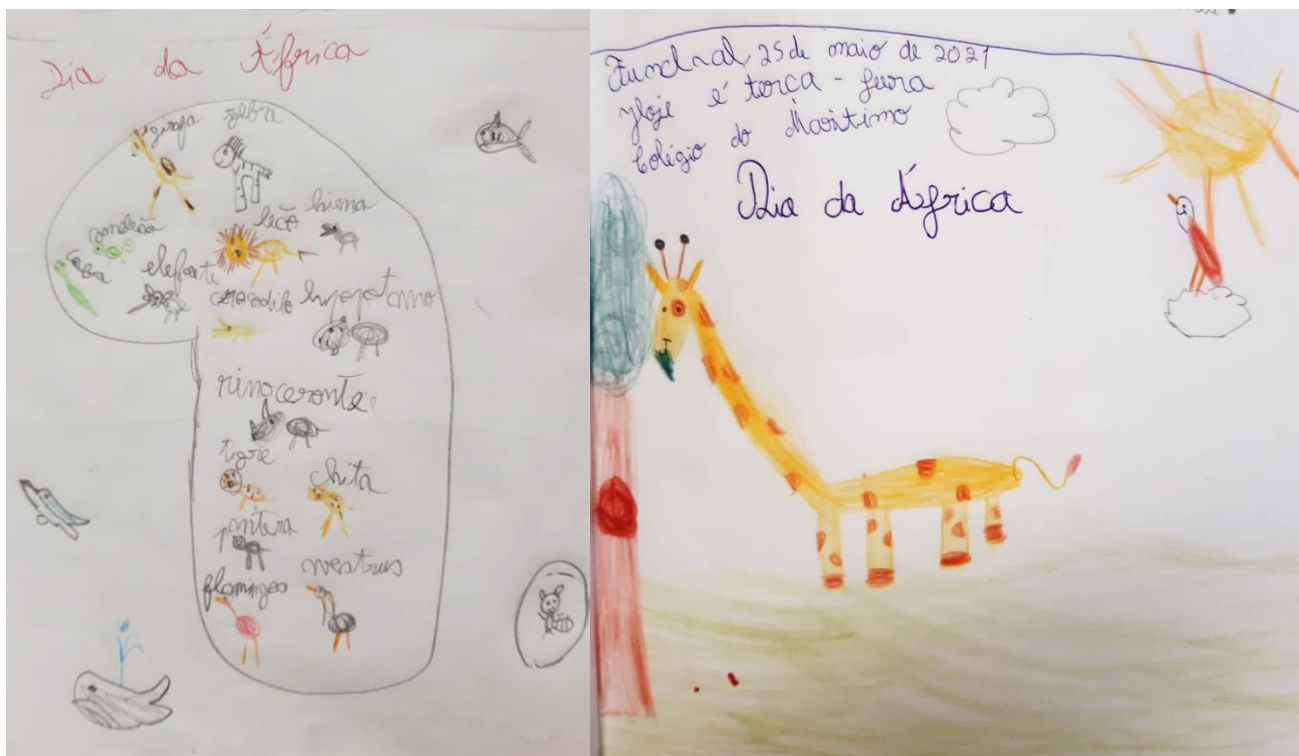 Dia da África
girafa zebra
leão hiena
cobra elefante
crocodilo hipopotamo
rinoceronte
tigre
chita
pantera
flamingos avestrus
Funchal, 25 de maio de 2021
Hoje é terça - feira
Colégio do Marítimo
Dia da África